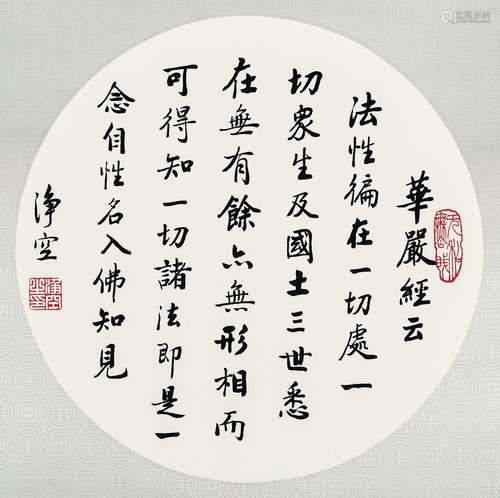 華嚴經云
法性徧在一切處一
切衆生及國土三世悉
在無有餘亦無形相而
可得知一切諸法即是一
念自性名入佛知見
淨空